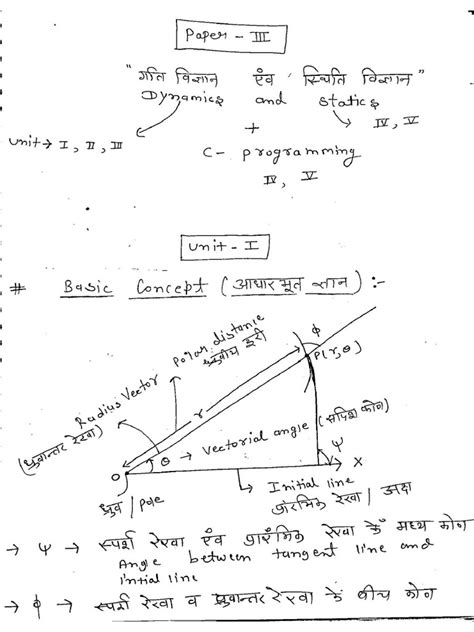 Paper - III
"गति विज्ञान एंव स्थिति विज्ञान"
Dynamics and statics
Unit → I, II, III
IV, V
+
C - Programming
IV, V
Unit - I
# Basic Concept (आधारभूत ज्ञान) :-
Polar distance
ध्रुवीय दूरी
Radius Vector
(ध्रुवान्तर रेखा)
r
ϕ
P(r, θ)
θ → Vectorial angle (सदिश कोण)
ψ
O
X
ध्रुव / Pole
Initial line
प्रारंभिक रेखा /
→ ψ → स्पर्श रेखा एंव प्रारंभिक रेखा के मध्य कोण
Angle between tangent line and
intial line
→ ϕ → स्पर्श रेखा व ध्रुवान्तर रेखा के बीच कोण